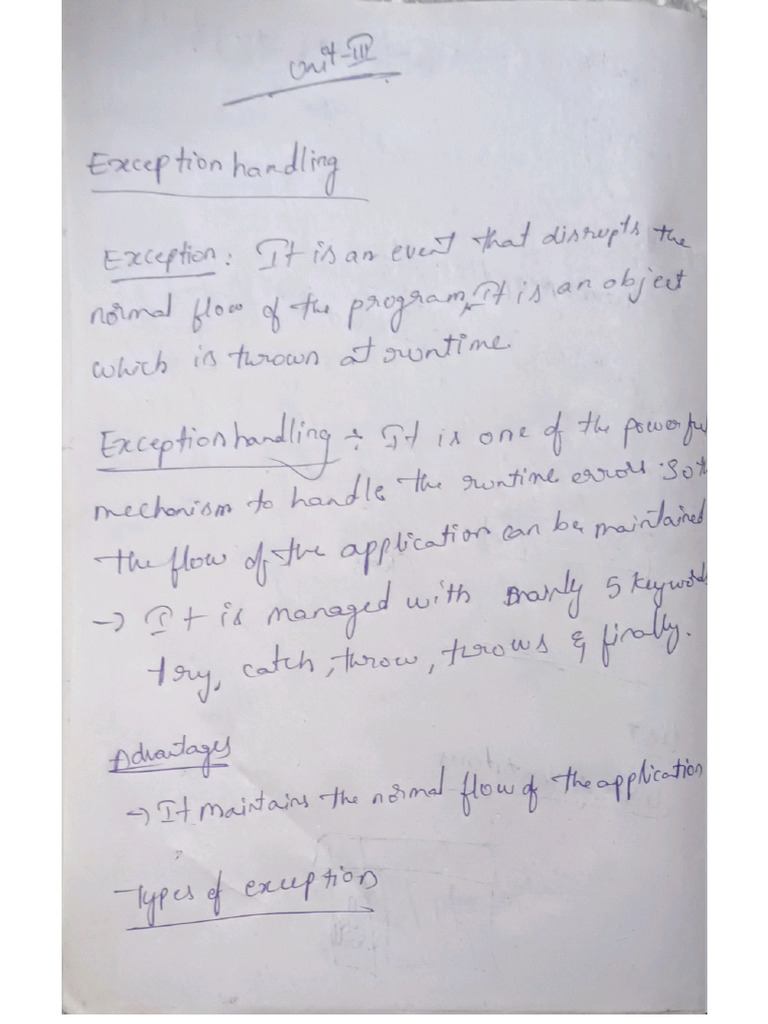 Unit-III
Exception handling
Exception: It is an event that disrupts the
normal flow of the program, It is an object
which is thrown at runtime.
Exception handling ÷ It is one of the powerful
mechanism to handle the runtime errors so
the flow of the application can be maintained
→ It is managed with mainly 5 keywords
try, catch, throw, throws & finally.
Advantages
→ It maintains the normal flow of the application
Types of exception